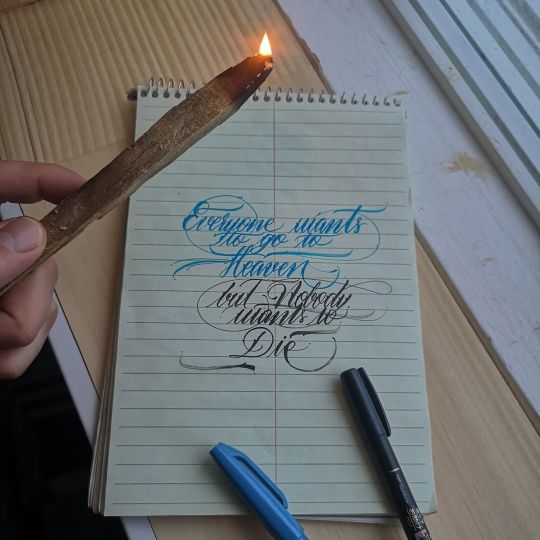 Everyone wants
to go to
Heaven
but Nobody
wants to
Die